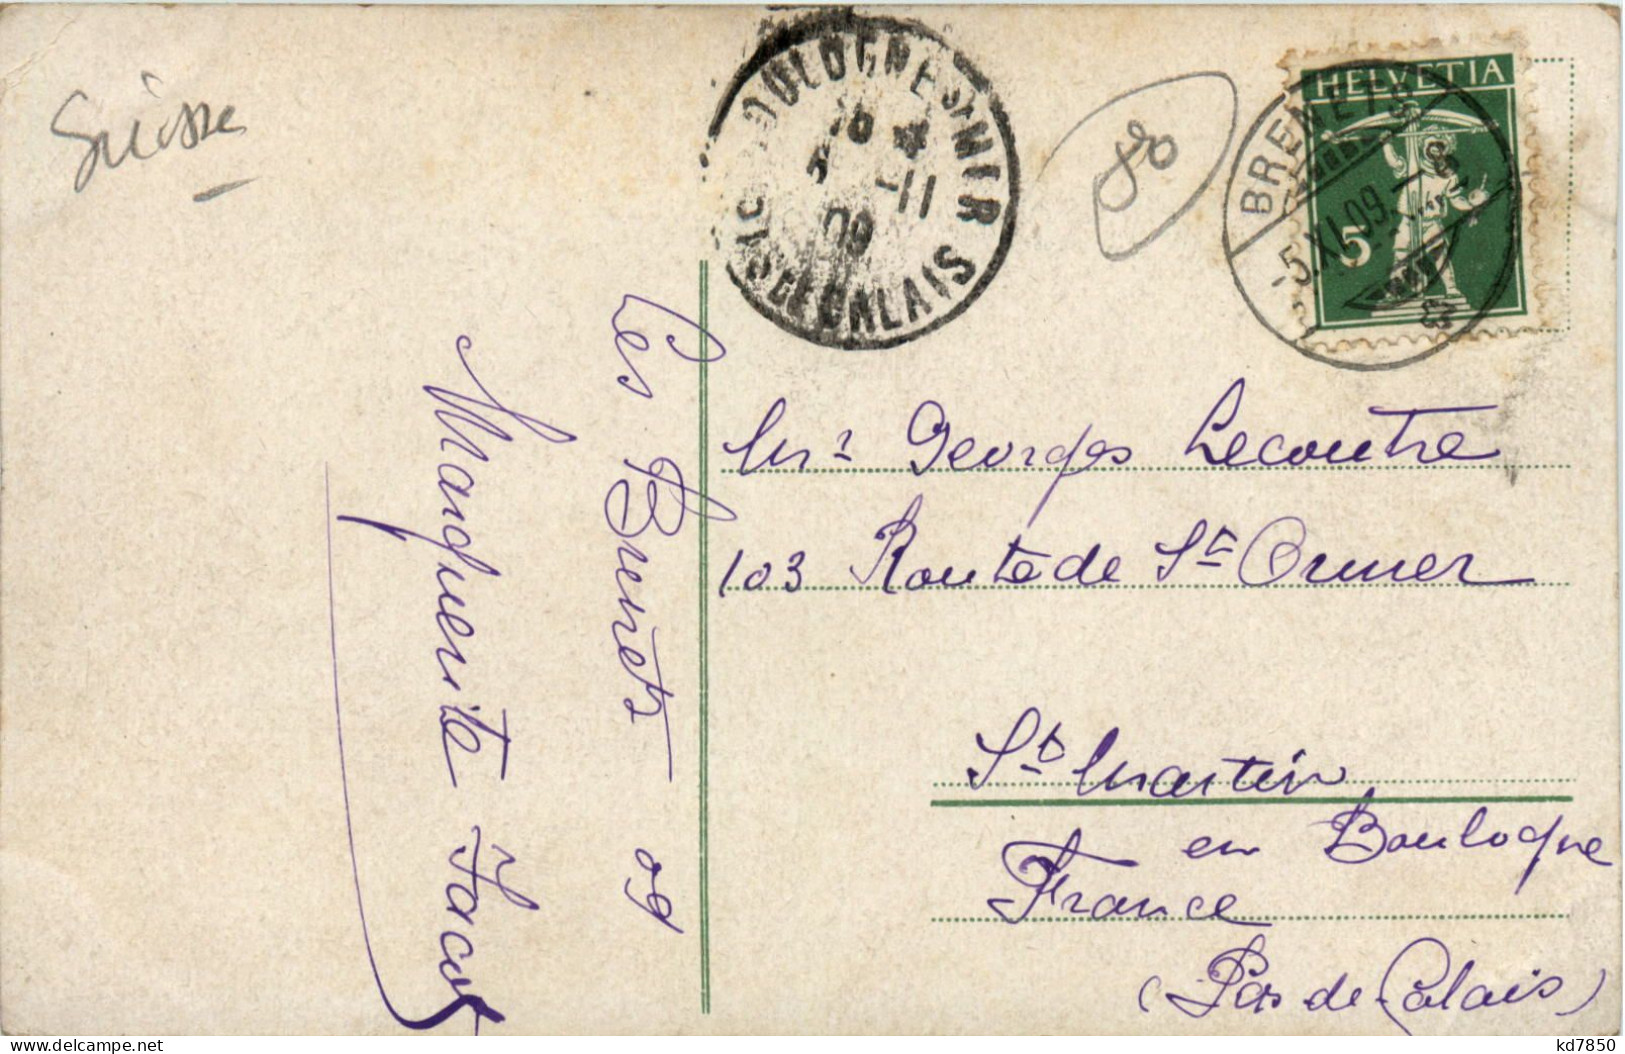 Suisse
BOULOGNE S/ MER
16
-11
09
PAS DE CALAIS
HELVETIA
5
BRENETS
-5.XI.09.
Les Brenets 09
Marguerite Jacot
Mr Georges Lecoutre
103 Route de St Omer
St Martin
en Boulogne
France
(Pas de Calais)
kd7850